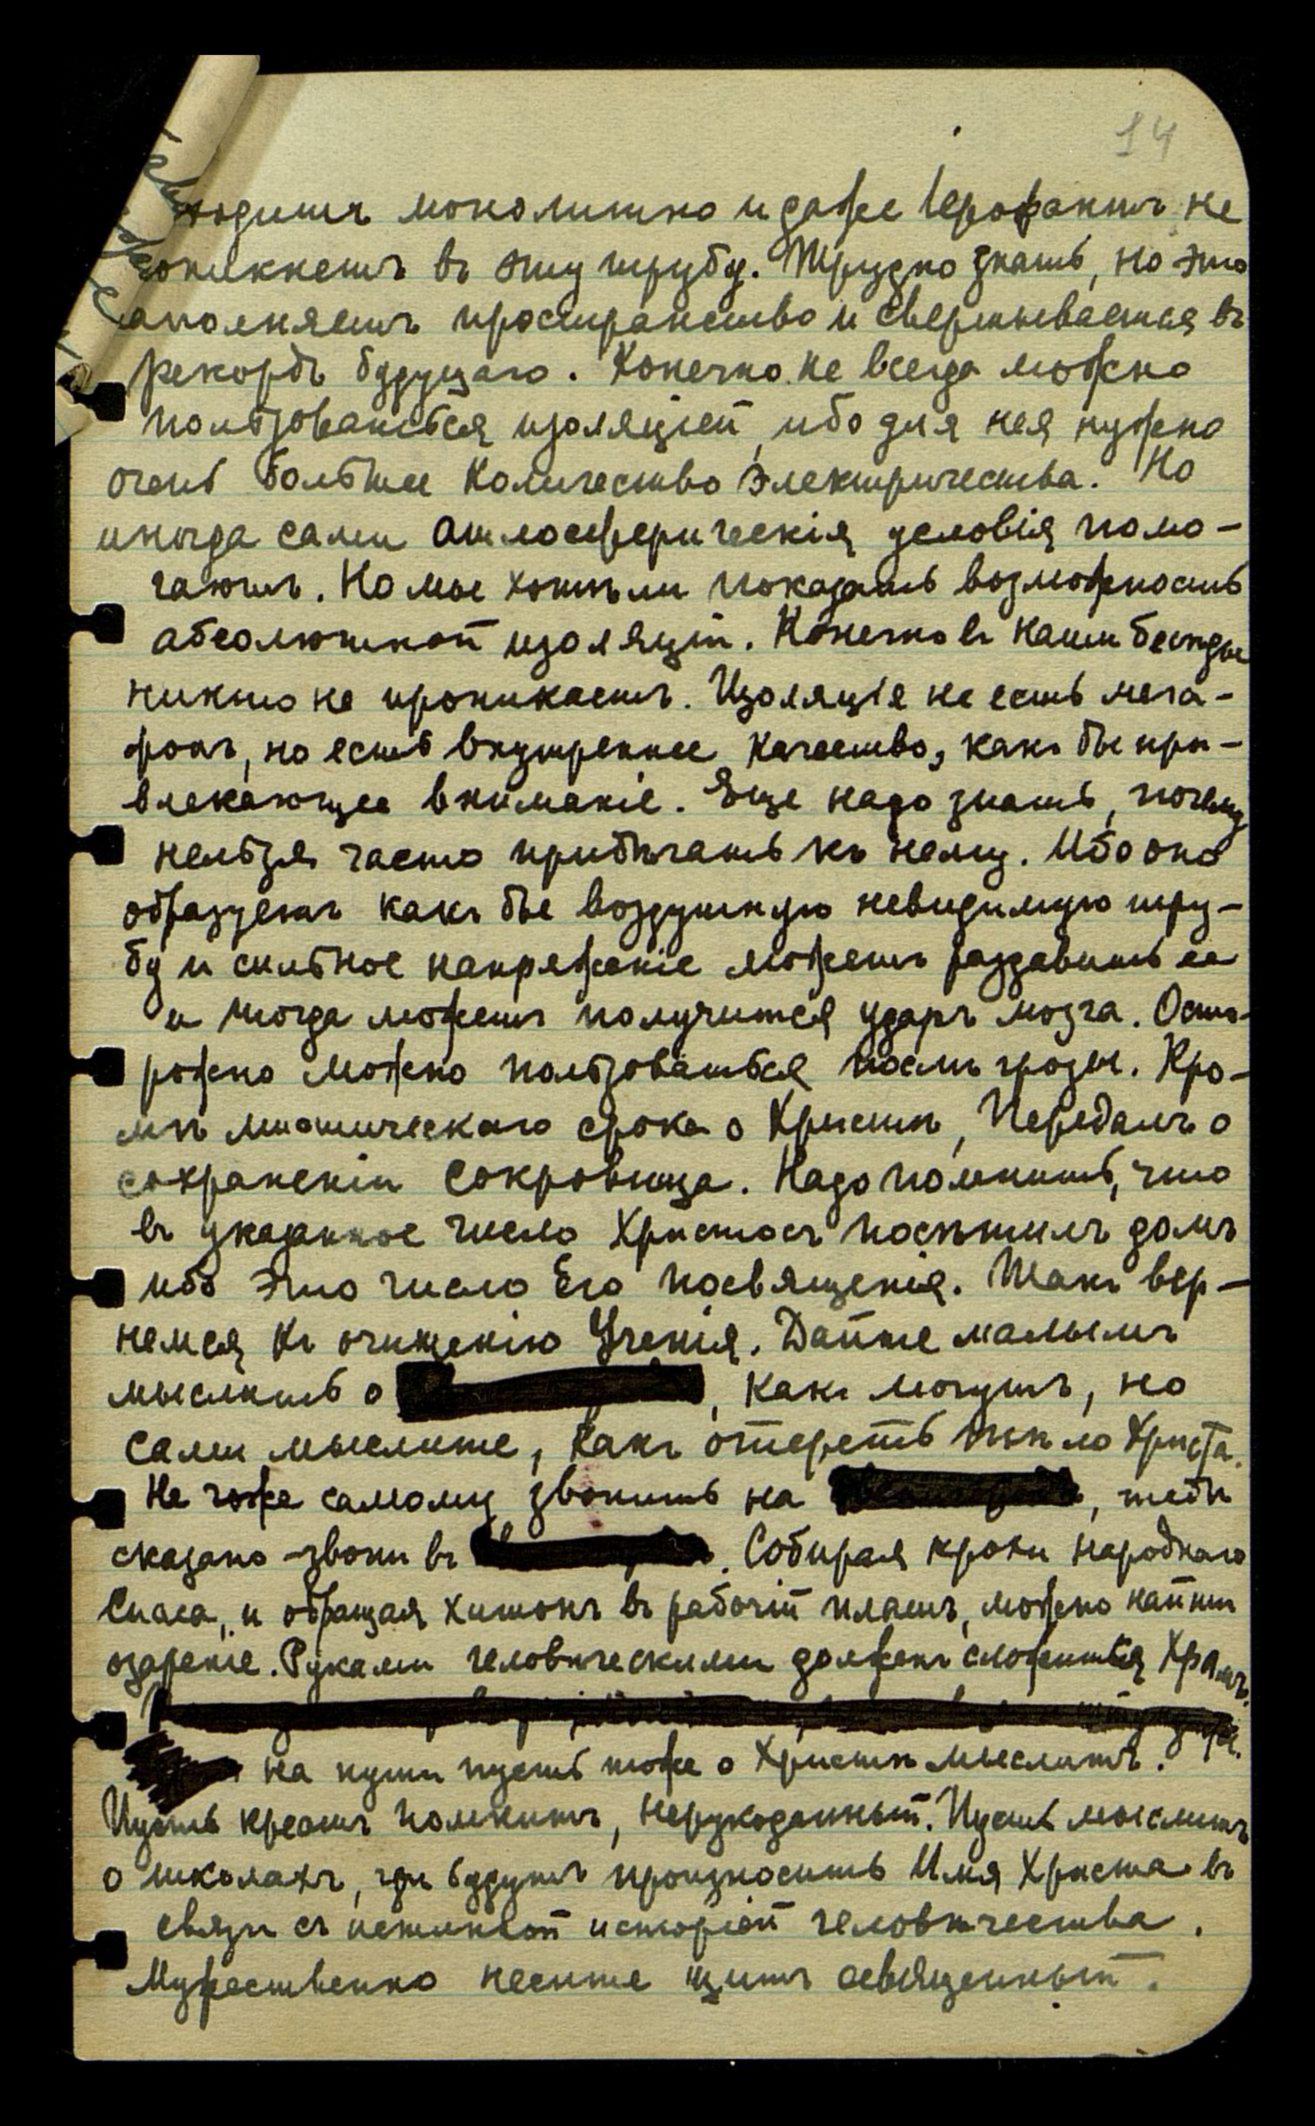 14
ходитъ монолитно и даже Іерофантъ не
проникнетъ въ эту трубу. Трудно знать, но это
наполняетъ пространство и свертывается въ
рекордъ будущаго. Конечно не всегда можно
пользоваться изоляціей, ибо для нея нужно
очень большее количество электричества. Но
иногда сами атмосферическія условія помо-
гаютъ. Но мы хотѣли показать возможность
абсолютной изоляціи. Конечно въ наши бесѣды
никто не проникаетъ. Изоляція не есть мега-
фонъ, но есть внутреннее качество, какъ бы при-
влекающее вниманіе. Еще надо знать, почему
нельзя часто прибѣгать къ нему. Ибо оно
образуетъ какъ бы воздушную невидимую тру-
бу и сильное напряженіе можетъ раздавить ее
и тогда можетъ получится ударъ мозга. Осто-
рожно можно пользоваться послѣ грозы. Кро-
мѣ мистическаго срока о Христѣ, Передамъ о
сохраненіи Сокровища. Надо помнить, что
въ указанное число Христосъ посѣтилъ домъ
ибо это число Его посвященія. Такъ вер-
немся къ очищенію Ученія. Дайте малымъ
мыслить о , какъ могутъ, но
сами мыслите, какъ отереть тѣло Христа.
Не гоже самому звонить на , тебѣ
сказано - звони въ . Собирая крохи народнаго
Спаса, и обращая хитонъ въ рабочій плащъ, можно найти
озареніе. Руками человѣческими долженъ сложиться Храмъ.
на пути пусть тоже о Христѣ мыслитъ.
Пусть крестъ помнитъ, нерукоданный. Пусть мыслитъ
о школахъ, гдѣ будутъ произносить Имя Христа въ
связи съ истинной исторіей человѣчества.
Мужественно несите щитъ освященный.